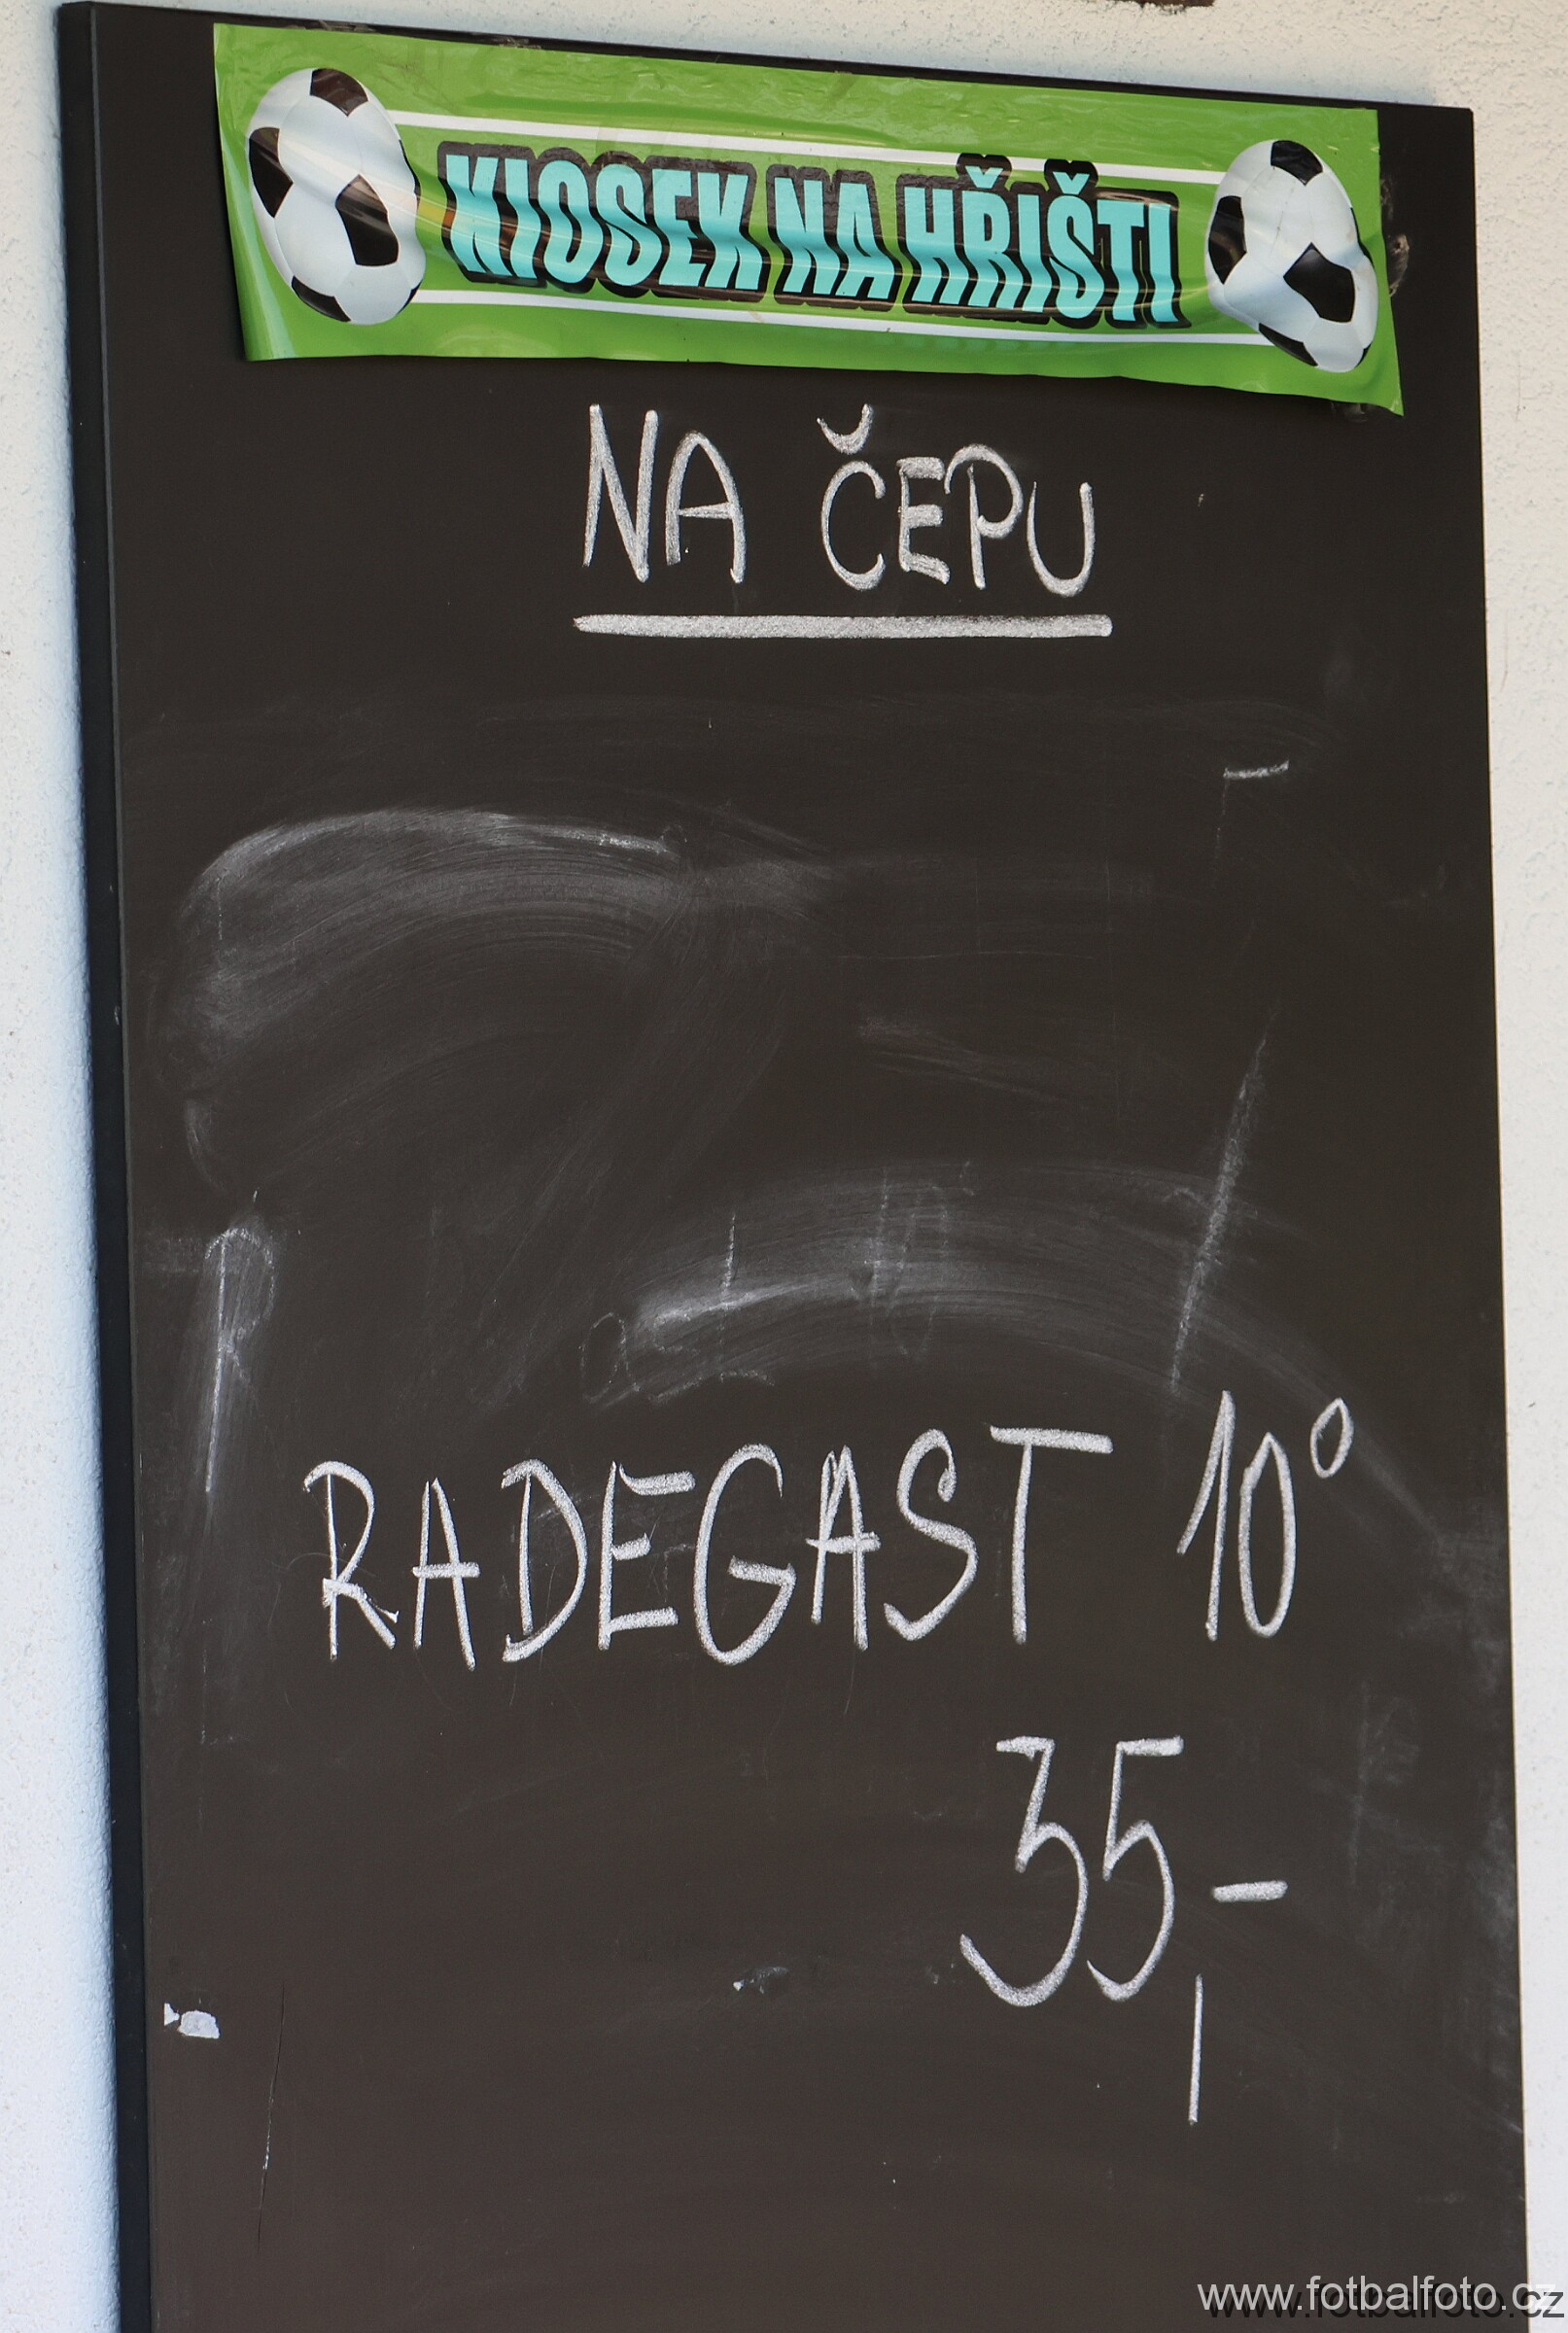 KIOSEK NA HŘIŠTI
NA ČEPU
RADEGAST 10°
35,-
www.fotbalfoto.cz